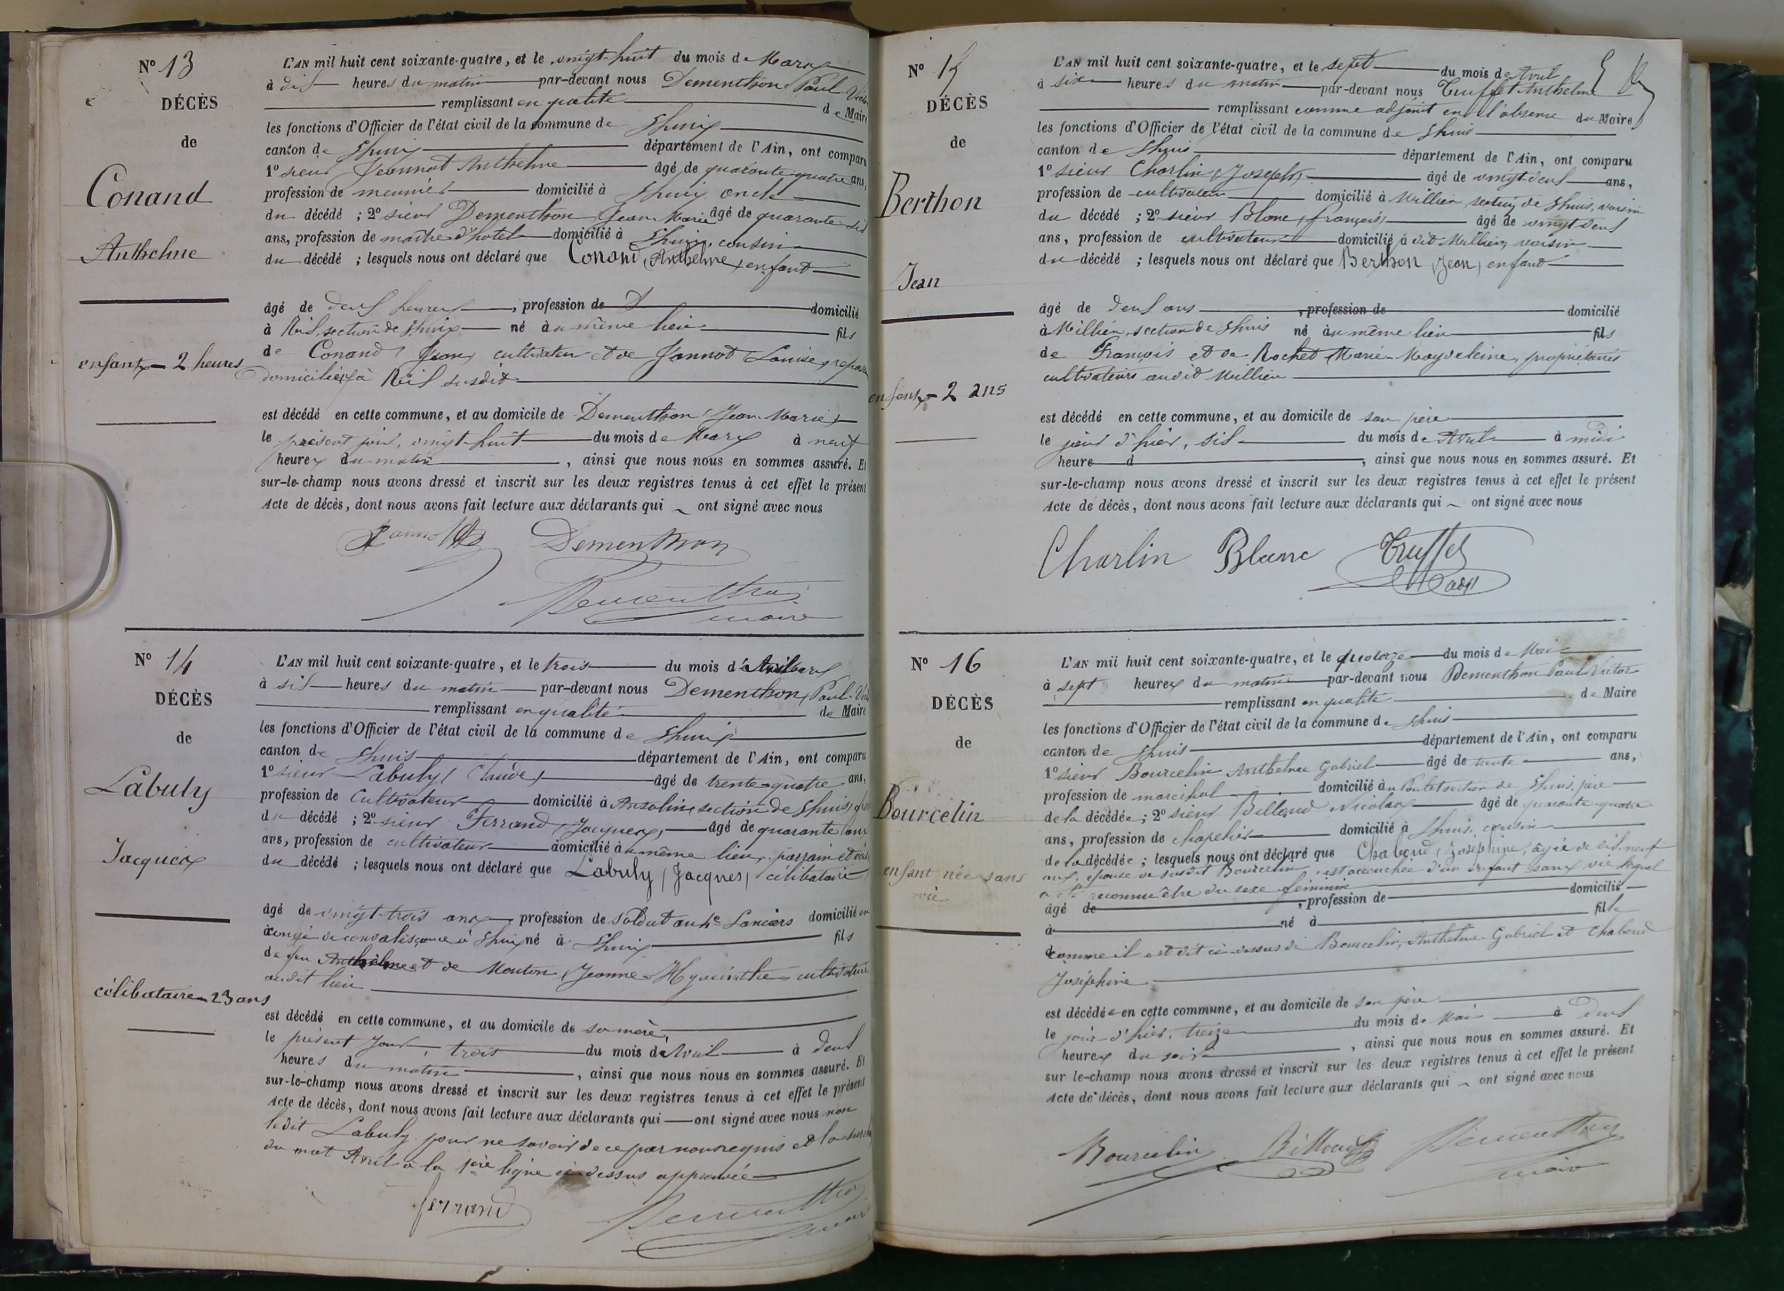 N° 13
DÉCÈS
de
Conand
Anthelme
enfant - 2 heures
L'AN mil huit cent soixante-quatre, et le vingt-huit du mois de Mars
à dix heures du matin par-devant nous Dementhon, Paul
remplissant en qualité de Maire
les fonctions d'Officier de l'état civil de la commune de Lhuis
canton de Lhuis département de l'Ain, ont comparu
1° sieur Jeannot Anthelme âgé de quarante quatre ans,
profession de meunier domicilié à Lhuis, oncle
du décédé ; 2° sieur Dementhon, Jean Marie âgé de quarante six
ans, profession de maître d'hotel domicilié à Lhuis, cousin
du décédé ; lesquels nous ont déclaré que Conand, Anthelme, enfant
âgé de deux heures, profession de domicilié
à section de Lhuis né au même lieu fils
de Conand, Jean, cultivateur et de Jannot Louise,
domiciliés à susdit
est décédé en cette commune, et au domicile de Dementhon, Jean Marie,
le présent jour, vingt-huit du mois de Mars à neuf
heures du matin, ainsi que nous nous en sommes assuré. Et
sur-le-champ nous avons dressé et inscrit sur les deux registres tenus à cet effet le présent
Acte de décès, dont nous avons fait lecture aux déclarants qui ont signé avec nous
Dementhon
Dementhon
maire
N° 14
DÉCÈS
de
Labuly
Jacques
célibataire - 23 ans
L'AN mil huit cent soixante-quatre, et le trois du mois d'Avril
à six heures du matin par-devant nous Dementhon, Paul
remplissant en qualité de Maire
les fonctions d'Officier de l'état civil de la commune de Lhuis
canton de Lhuis département de l'Ain, ont comparu
1° sieur Labuly, Claude, âgé de trente-quatre ans,
profession de cultivateur domicilié à Ansolin, section de Lhuis,
du décédé ; 2° sieur Ferrand, Jacques, âgé de quarante
ans, profession de cultivateur domicilié au même lieu,
du décédé ; lesquels nous ont déclaré que Labuly, Jacques, célibataire
âgé de vingt-trois ans, profession de soldat au Lanciers domicilié en
congé de convalescence à Lhuis né à Lhuis fils
de feu Anthelme et de Mouton, Jeanne-Hyacinthe, cultivatrice
audit lieu
est décédé en cette commune, et au domicile de sa mère,
le présent jour, trois du mois d'Avril à deux
heures du matin, ainsi que nous nous en sommes assuré. Et
sur-le-champ nous avons dressé et inscrit sur les deux registres tenus à cet effet le présent
Acte de décès, dont nous avons fait lecture aux déclarants qui ont signé avec nous non
ledit Labuly pour ne savoir de ce par nous requis et la
du mot Avril à la 1ère ligne ci-dessus approuvée
Ferrand
Dementhon
maire
N° 15
DÉCÈS
de
Berthon
Jean
enfant - 2 ans
L'AN mil huit cent soixante-quatre, et le sept du mois d'Avril
à six heures du matin par-devant nous Truffet Anthelme
remplissant comme adjoint en l'absence du Maire
les fonctions d'Officier de l'état civil de la commune de Lhuis
canton de Lhuis département de l'Ain, ont comparu
1° sieur Charlin, Joseph, âgé de vingt deux ans,
profession de cultivateur domicilié à Millieu section de Lhuis, voisin
du décédé ; 2° sieur Blanc, François, âgé de vingt deux
ans, profession de cultivateur domicilié à dit Millieu, voisin
du décédé ; lesquels nous ont déclaré que Berthon, Jean, enfant
âgé de deux ans, profession de domicilié
à Millieu, section de Lhuis né au même lieu fils
de François et de Rochet Marie-Magdeleine, propriétaires
cultivateurs audit Millieu
est décédé en cette commune, et au domicile de son père
le jour d'hier, six du mois d'Avril à midi
heure d, ainsi que nous nous en sommes assuré. Et
sur-le-champ nous avons dressé et inscrit sur les deux registres tenus à cet effet le présent
Acte de décès, dont nous avons fait lecture aux déclarants qui ont signé avec nous
Charlin Blanc Truffet
N° 16
DÉCÈS
de
Bourcelin
enfant née sans
vie
L'AN mil huit cent soixante-quatre, et le quatorze du mois de Mai
à sept heures du matin par-devant nous Dementhon Paul Victor
remplissant en qualité de Maire
les fonctions d'Officier de l'état civil de la commune de Lhuis
canton de Lhuis département de l'Ain, ont comparu
1° sieur Bourcelin Anthelme Gabriel âgé de trente ans,
profession de marechal domicilié à section de Lhuis, père
de la décédée ; 2° sieur Billoud Nicolas âgé de quarante quatre
ans, profession de chapelier domicilié à Lhuis, cousin
de la décédée ; lesquels nous ont déclaré que Chaboud, Joséphine, âgée de
ans, épouse du susdit Bourcelin, est accouchée d'un enfant sans vie lequel
a été reconnu être du sexe féminin
âgé de, profession de domicilié
à né à fille
comme il est dit ci-dessus de Bourcelin, Anthelme Gabriel et Chaboud
Joséphine
est décédée en cette commune, et au domicile de son père
le jour d'hier, treize du mois de Mai à deux
heures du soir, ainsi que nous nous en sommes assuré. Et
sur le-champ nous avons dressé et inscrit sur les deux registres tenus à cet effet le présent
Acte de décès, dont nous avons fait lecture aux déclarants qui ont signé avec nous
Bourcelin Billoud Dementhon
maire